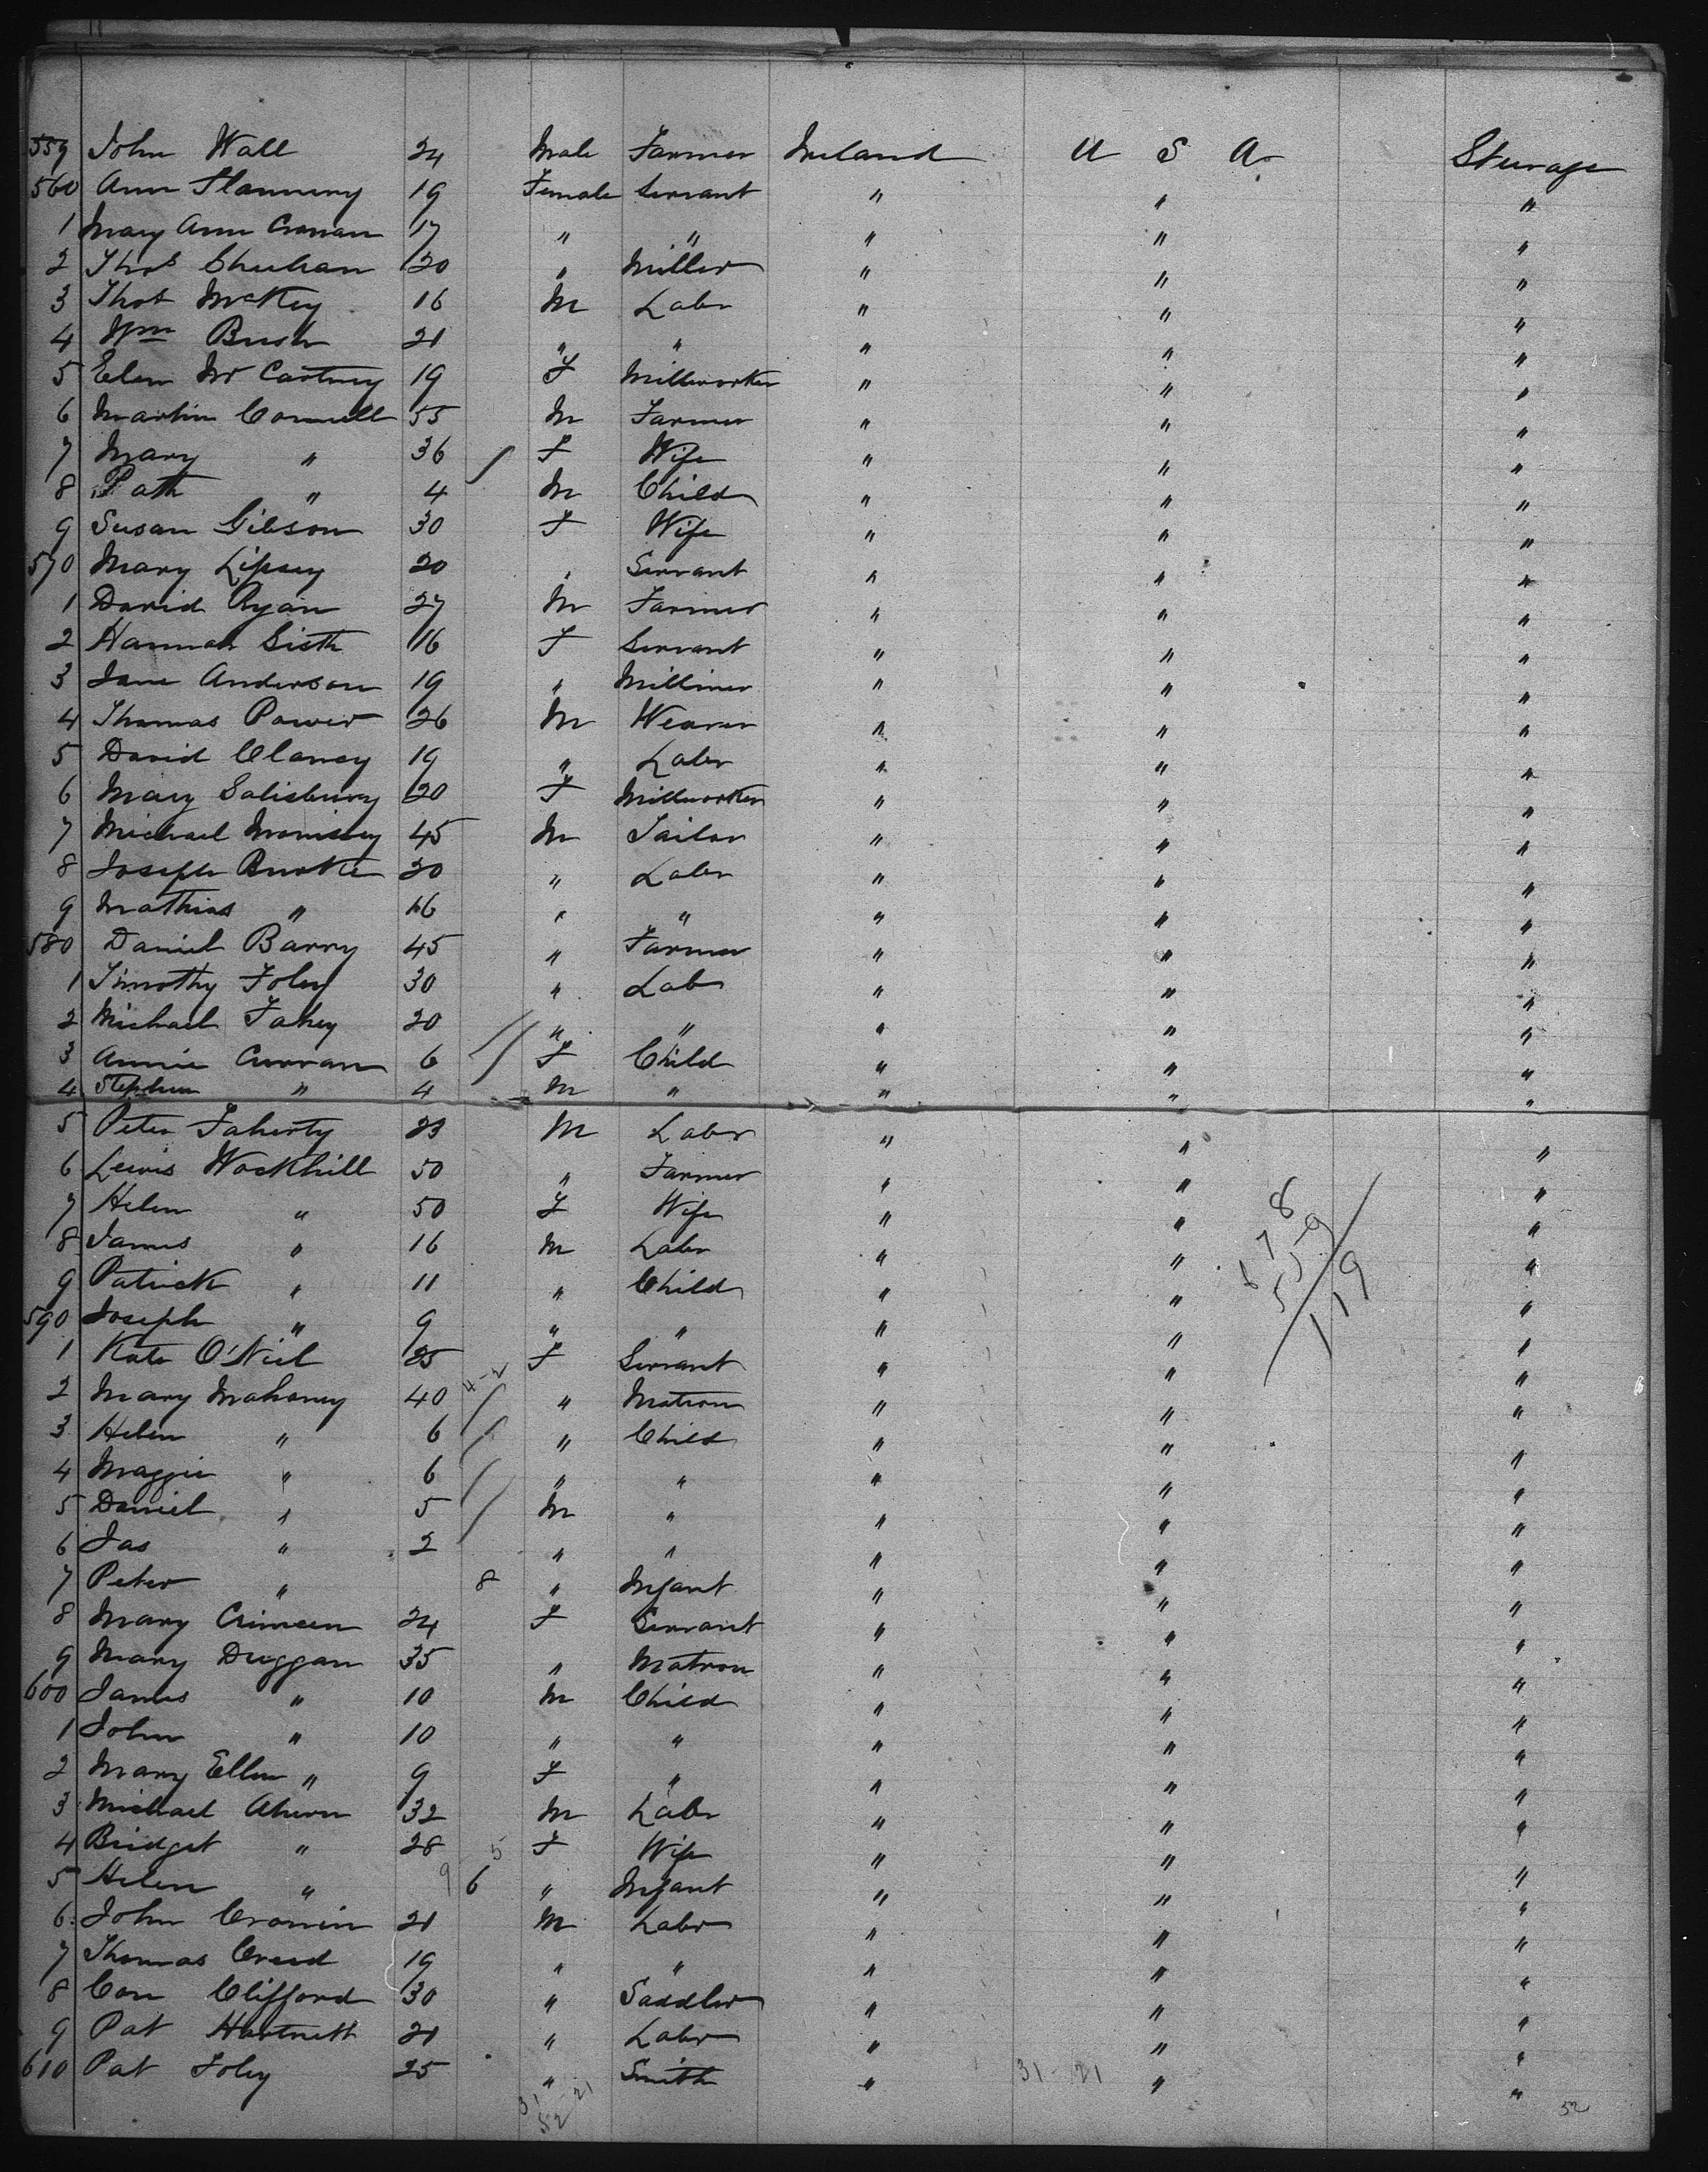 559 John Wall 24 Male Farmer Ireland U S A. Steerage
560 Ann Flannery 19 Female Servant " " "
1 Mary Ann 17 " " " " "
2 Thos 20 " Miller " " "
3 Thos McKey 16 M Labr " " "
4 Wm Bush 21 " " " " "
5 Elen Mc Cartney 19 F Millworker " " "
6 Martin Connell 55 M Farmer " " "
7 Mary " 36 F Wife " " "
8 Path " 4 M Child " " "
9 Susan Gibson 30 F Wife " " "
570 Mary Lipsey 20 " Servant " " "
1 David Ryan 27 M Farmer " " "
2 Hannah 16 F Servant " " "
3 Jane Anderson 19 " Milliner " " "
4 Thomas Power 26 M Weaver " " "
5 David Clancy 19 " Labr " " "
6 Mary Salisbury 20 F Millworker " " "
7 Michael Morrissey 45 M Tailor " " "
8 Joseph Burke 20 " Labr " " "
9 Mathias " 16 " " " " "
580 Daniel Barry 45 " Farmer " " "
1 Timothy Foley 30 " Lab " " "
2 Michael Fahey 20 " " " " "
3 Annie Curran 6 F Child " " "
4 Stephen " 4 M " " " "
5 Peter Faherty 23 M Labr " " "
6 Lewis Wockhill 50 " Farmer " " "
7 Helen " 50 F Wife " " "
8 James " 16 M Labr " " "
9 Patrick " 11 " Child " " "
590 Joseph " 9 " " " " "
1 Kate O'Neil 25 F Servant " " "
2 Mary Mahoney 40 " Matron " " "
3 Helen " 6 " Child " " "
4 Maggie " 6 " " " " "
5 Daniel " 5 M " " " "
6 Jas " 2 " " " " "
7 Peter " 8 " Infant " " "
8 Mary Crimeen 24 F Servant " " "
9 Mary Duggan 35 " Matron " " "
600 James " 10 M Child " " "
1 John " 10 " " " " "
2 Mary Ellen " 9 F " " " "
3 Michael Ahern 32 M Labr " " "
4 Bridget " 28 F Wife " " "
5 Helen " 6 " Infant " " "
6 John Cronin 21 M Labr " " "
7 Thomas Creed 19 " " " " "
8 Con Clifford 30 " Saddler " " "
9 Pat Hartnett 21 " Labr " " "
610 Pat Foley 25 " Smith " " "
31 - 21
52